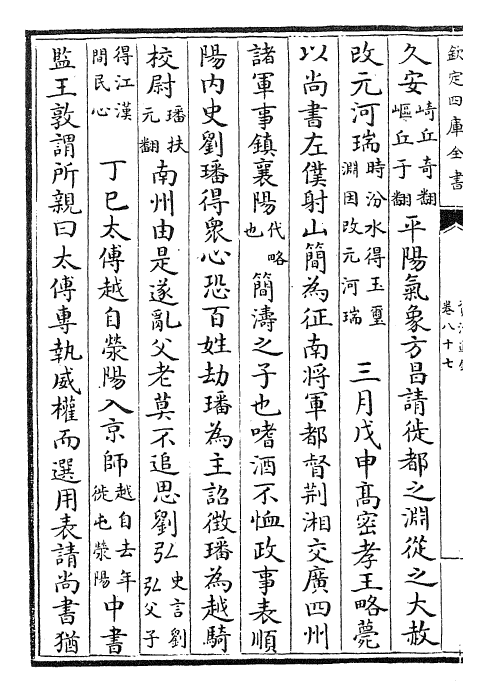 欽定四庫全書
卷八十七
久安崎丘奇翻嶇丘于翻平陽氣象方昌請徙都之淵從之大赦
改元河瑞時汾水得玉璽淵因改元河瑞 三月戊申髙密孝王略薨
以尚書左僕射山簡為征南将軍都督荆湘交廣四州
諸軍事鎮襄陽代略也簡濤之子也嗜酒不恤政事表順
陽内史劉璠得衆心恐百姓劫璠為主詔徵璠為越騎
校尉璠扶元翻南州由是遂亂父老莫不追思劉弘史言劉弘父子
得江漢間民心 丁巳太傅越自滎陽入京師越自去年徙屯滎陽中書
監王敦謂所親曰太傅專執威權而選用表請尚書猶